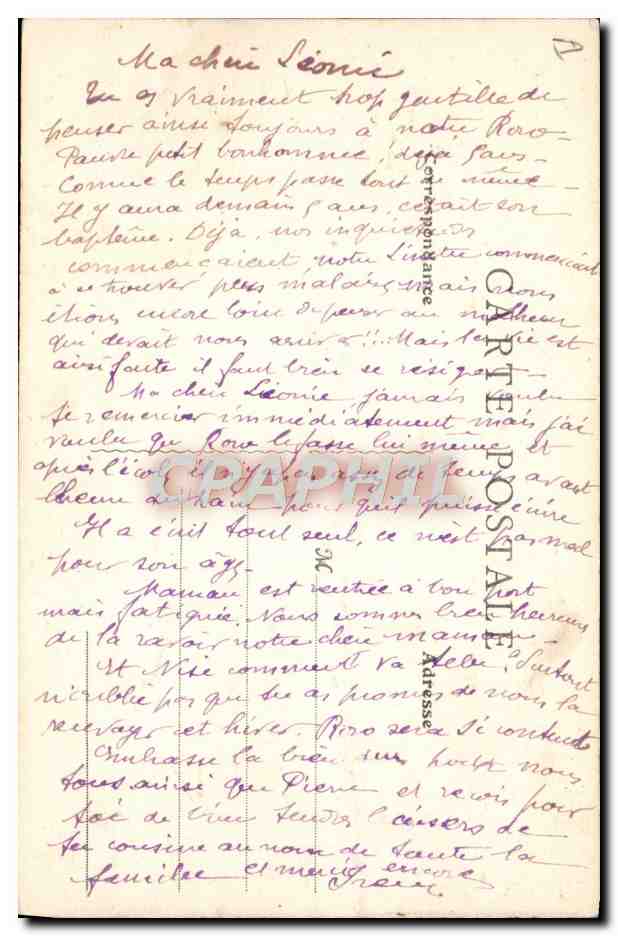 Ma chère Léonie
Tu es vraiment trop gentille de
penser ainsi toujours à notre Roro
Pauvre petit bonhomme, déjà 5 ans
Comme le temps passe tout de même
Il y aura demain 5 ans, c'était son
baptême. Déjà, nos inquiétudes
commençaient notre commençait
à se trouver plus malade, mais nous
étions encore loin de penser au malheur
qui devait nous arriver!!. Mais la vie est
ainsi faite il faut bien se résigner
Ma chère Léonie j'aurais voulu
te remercier immédiatement mais j'ai
voulu que Roro le fasse lui même et
après l'école il n'y a pas assez de temps avant
l'heure du pour qu'il puisse écrire
Il a écrit tout seul, ce n'est pas mal
pour son âge.
Maman est rentrée à bon port
mais fatiguée. Nous sommes bien heureux
de la ravoir notre chère maman
Et Nise comment va-t-elle? Surtout
n'oublie pas que tu as promis de nous la
renvoyer cet hiver. Roro sera si content
Embrasse la bien pour nous
tous ainsi que Pierre et reçois pour
toi de bien tendres baisers de
ta cousine au nom de toute la
famille et merci encore
Irène
CARTE POSTALE
Correspondance
Adresse
M
CPAPHIL